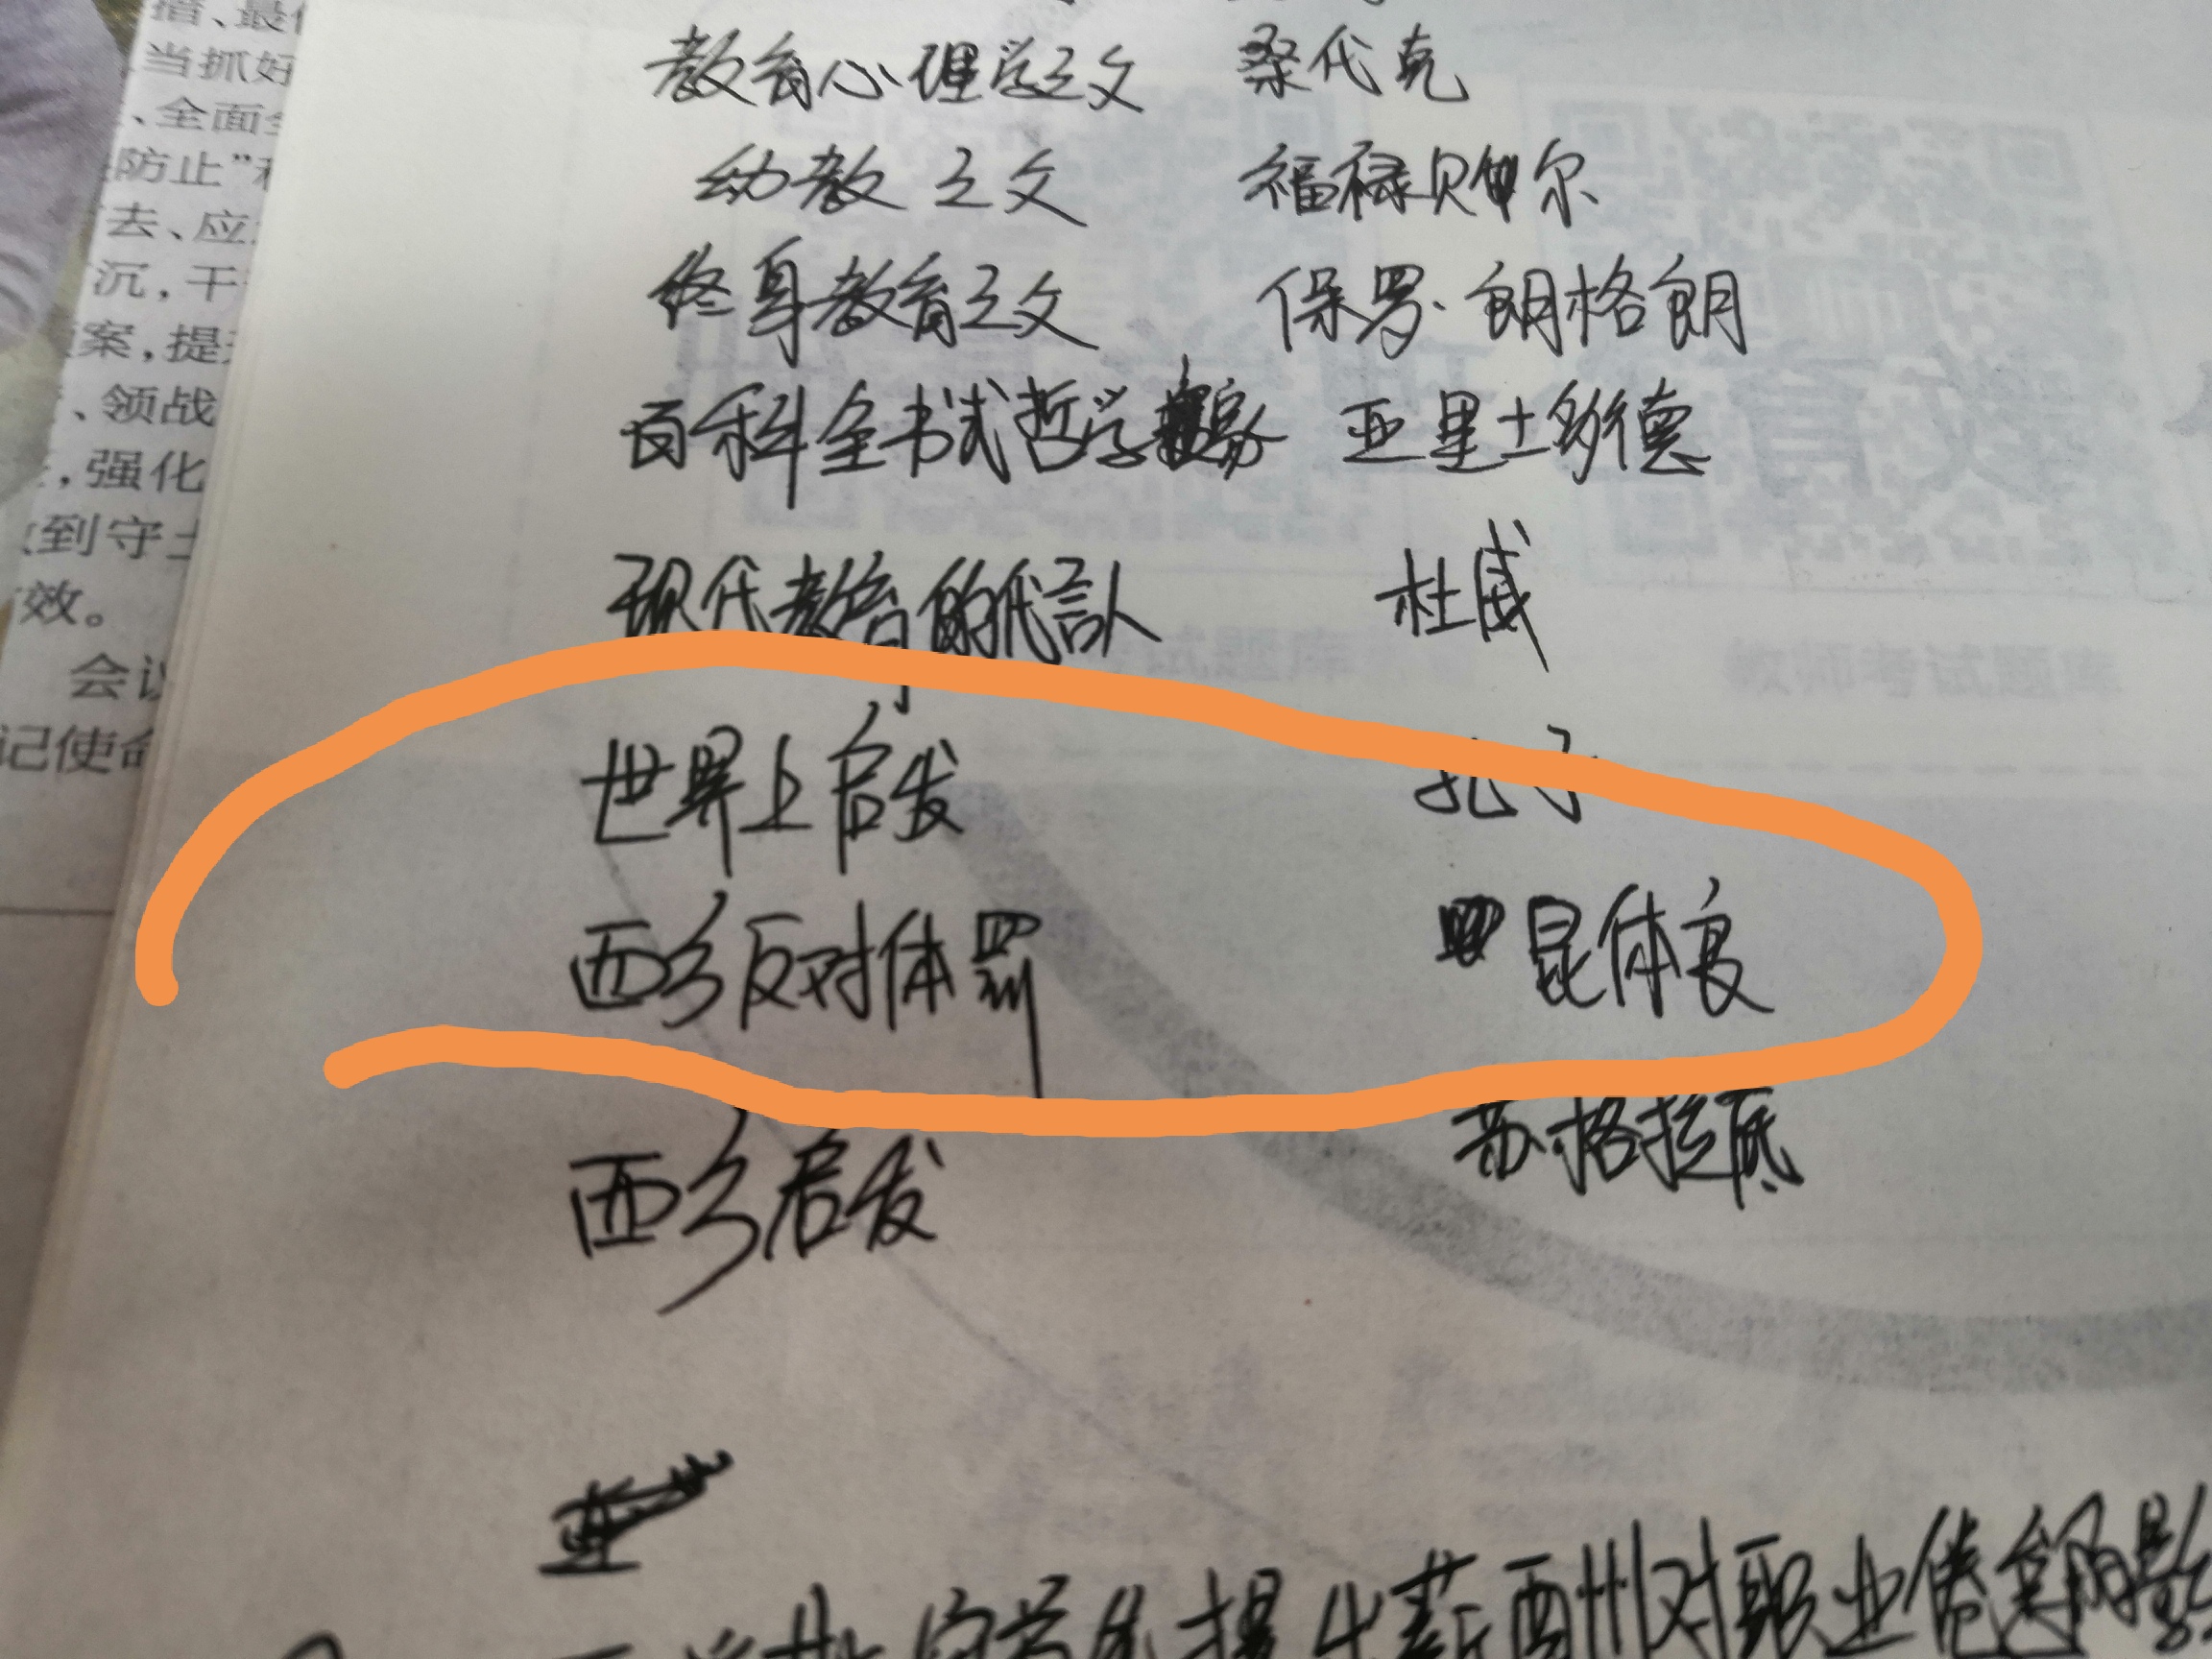 措、最
当抓好
、全面
防止"
去、应
沉，干
案，提
、领战
，强化
到守土
效。
会议
记使命
教育心理学之父 桑代克
幼教之父 福禄贝尔
终身教育之父 保罗·朗格朗
百科全书式哲学家 亚里士多德
现代教育的代言人 杜威
世界上启发 孔子
西方反对体罚 昆体良
西方启发 苏格拉底
教师考试题库
对职业倦怠的影